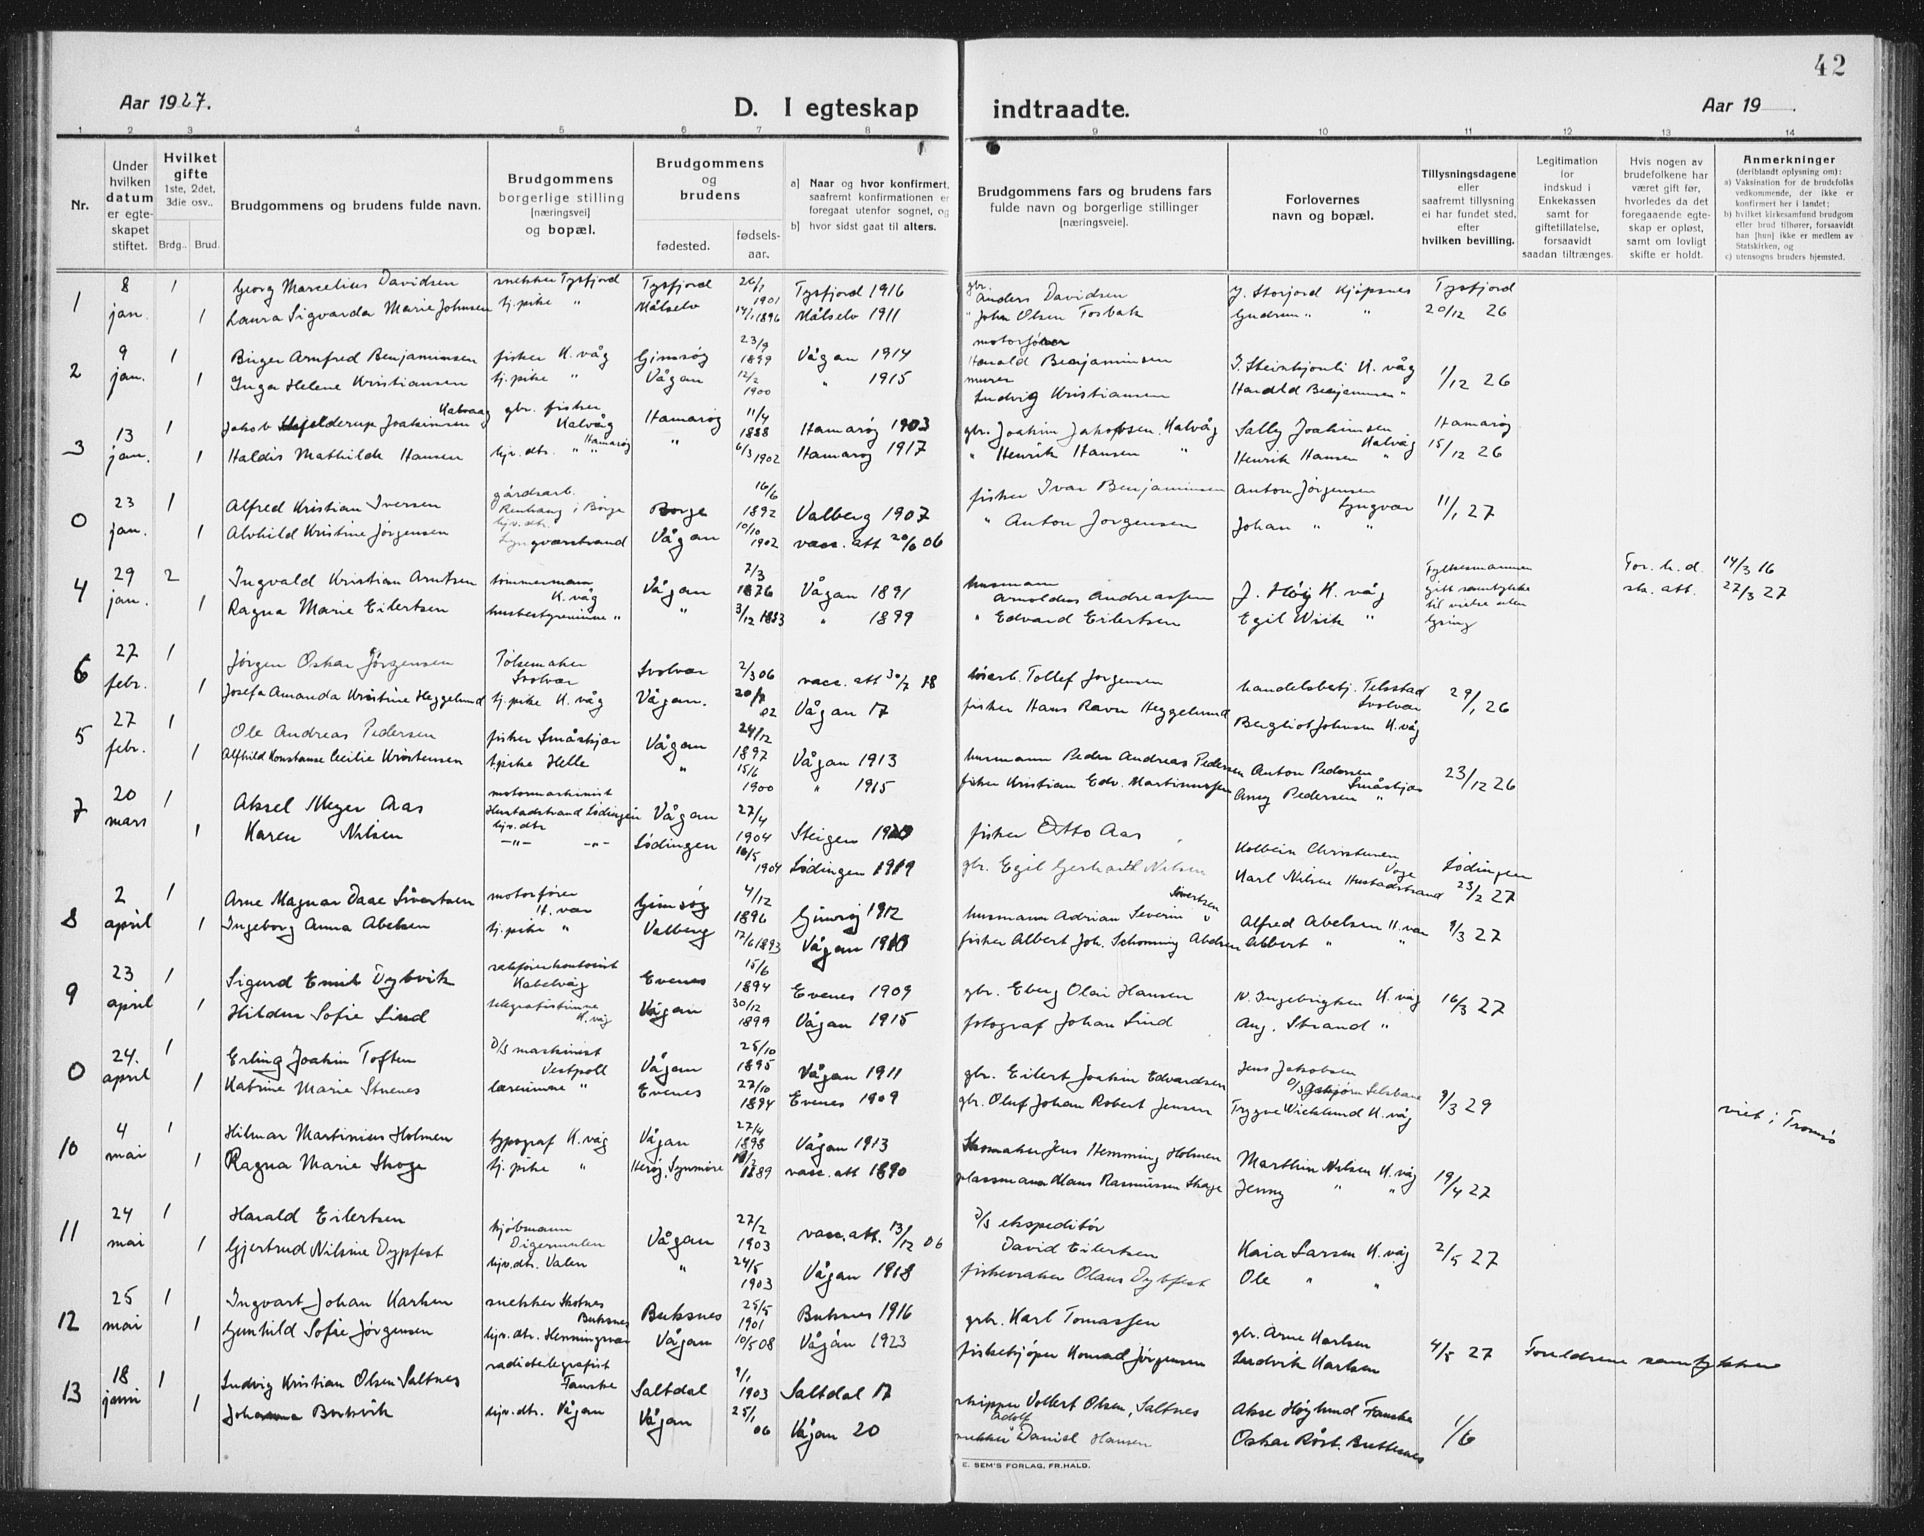 42
Aar 1927.
D. I egteskap indtraadte.
Aar 19 .
1 2 3 4 5 6 7 8 9 10 11 12 13 14
Nr.
Under hvilken datum er egteskapet stiftet.
Hvilket gifte 1ste, 2det, 3die osv..
Brdg.. Brud.
Brudgommens og brudens fulde navn.
Brudgommens borgerlige stilling [næringsvei] og bopæl.
Brudgommens og brudens
fødested.
fødselsaar.
a) Naar og hvor konfirmert, saafremt konfirmationen er foregaat utenfor sognet, og
b) hvor sidst gaat til alters.
Brudgommens fars og brudens fars fulde navn og borgerlige stillinger [næringsveie].
Forlovernes navn og bopæl.
Tillysningsdagene eller saafremt tillysning ei har fundet sted, efter hvilken bevilling.
Legitimation for indskud i Enkekassen samt for giftetillatelse, forsaavidt saadan tiltrænges.
Hvis nogen av brudefolkene har været gift før, hvorledes da det foregaaende egteskap er opløst, samt om lovligt skifte er holdt.
Anmerkninger (deriblandt oplysning om):
a) Vaksination for de brudefolks vedkommende, der ikke er konfirmert her i landet;
b) hvilket kirkesamfund brudgom eller brud tilhører, forsaavidt han [hun] ikke er medlem av Statskirken, og
c) utensogns bruders hjemsted.
1 8 jan. 1 Georg Marcelius Davidsen snekker Tysfjord Tysfjord 26/1 1901 Tysfjord 1916 gbr. Anders Davidsen J. Storjord Kjøpsnes Tysfjord
1 Laura Sigvarda Marie Johnsen tj. pike " Målselv 14/1 1896 Målselv 1911 " John Olsen Fosbak Gudrun " " 20/12 26
2 9 jan. 1 Birger Arnfred Benjaminsen fisker K. våg Gimsøy 23/9 1899 Vågan 1914 motorfører Harald Benjaminsen K. våg 1/12 26
1 Inga Helene Kristiansen tj. pike " Vågan 12/2 1900 " 1915 murer Ludvig Kristiansen Harald Benjaminsen "
3 13 jan. 1 Jakob Hjelderup Joakimsen Kalvaag gbr. fisker Kalvåg Hamarøy 11/4 1888 Hamarøy 1903 gbr. Joakim Jakobsen Kalvåg Sally Joakimsen Kalvåg Hamarøy
1 Haldis Mathilde Hansen hjv. dtr. " " Hamarøy " 6/3 1902 Hamarøy 1917 " Henrik Hansen " Henrik Hansen " 15/12 26
0 23 jan. 1 Alfred Kristian Iversen gårdsarb. i Borge Borge 16/6 1892 Valberg 1907 fisker Ivar Benjaminsen Anton Jørgensen Lyngvær 11/1 27
1 Alvhild Kristine Jørgensen hjv. dtr. Lyngværstrand Vågan 10/10 1902 vacc. att 20/6 06 " Anton Jørgensen Johan " "
4 29 jan. 2 Ingvald Kristian Arntsen tømmermann K. våg Vågan 7/3 1876 Vågan 1891 husmann Arnoldus Andreassen J. Høy K. våg Fylkesmannen gitt samtykke til vielse uten lysing For. h. d. sk. att. 14/3 16 27/3 27
1 Ragna Marie Eilertsen husbestyrerinne " " 3/12 1883 " 1899 " Edvard Eilertsen Egil Wiik "
6 27 febr. 1 Jørgen Oskar Jørgensen Pølsemaker Svolvær Svolvær 2/3 06 vacc. att 30/7 18 Tollef Jørgensen handelsbetj. Svolvær 29/1 26
1 Josefa Amanda Kristine Heggelund tj. pike K. våg Vågan. 02 Vågan 17 fisker Hans Ravn Heggelund Bergliot Johnsen K. våg
5 27 febr. 1 Ole Andreas Pedersen fisker Småskjær Vågan 24/12 1897 Vågan 1913 husmann Peder Andreas Pedersen Anton Pedersen Småskjær 23/12 26
1 Alfhild Konstanse Cecilie Kristensen tj. pike Helle " 15/6 1900 " 1915 fisker Kristian Edv. Martinussen Amy Pedersen "
7 20 mars 1 Aksel Meyer Aas motormaskinist Hustadstrand Lødingen Vågan 27/4 1904 Steigen 19 fisker Otto Aas Kolbein Christensen Voge Lødingen
1 Karen Nilsen hjv. dtr. -"- -"- Lødingen 16/5 1904 Lødingen 1919 gbr. Egil Gerhard Nilsen Karl Nilsen Hustadstrand 23/2 27
8 2 april 1 Arne Magnar Daae Sivertsen motorfører H. vær Gimsøy 4/12 1896 Gimsøy 1912 husmann Adrian Severin Sivertsen Alfred Abelsen H. vær 9/3 27
1 Ingeborg Anna Abelsen tj. pike " Valberg 12/6 1893 Vågan 1910 fisker Albert Joh. Schonning Abelsen Albert " "
9 23 april 1 Sigurd Emil Dybvik sakførerkontorist Kabelvåg Evenes 15/6 1894 Evenes 1909 gbr. Eberg Olai Hansen N. Ingebrigtsen K. våg 16/3 27
1 Hildur Sofie Lind telegrafistinne K. våg Vågan 30/12 1899 Vågan 1915 fotograf Johan Lind Aug. Strand "
0 24. april 1 Erling Joakim Toften D/S maskinist Vestpoll Vågan 25/10 1895 Vågan 1911 gbr. Eilert Joakim Edvardsen Jens Jakobsen 9/3 29 viet i Tromsø
1 Katrine Marie Stuenes lærerinne " Evenes 27/10 1894 Evenes 1909 gbr. Oluf Johan Robert Jensen Trygve Wicklund K. våg
10 4 mai 1 Hilmar Martinius Holmen typograf K. våg Vågan 27/4 1898 Vågan 1913 Skomaker Jens Hemming Holmen Marthin Nilsen K. våg 19/4 27
1 Ragna Marie Skoge tj. pike " Herøy, Synmøre 1889 vacc. att 1890 plassmann Klaus Rasmussen Skoge Jenny " "
11 24 mai 1 Harald Eilertsen kjøbmann Digermulen Vågan 27/2 1903 vacc. att. 13/12 06 D/S ekspeditør David Eilertsen Kaia Larsen K. våg 2/5 27
1 Gjertrud Nilsine Dypfest hjv. dtr. Valen " 24/5 1903 Vågan 1918 fiskevraker Olaus Dybfest Ole " "
12 25 mai 1 Ingvart Johan Karlsen snekker Skotnes Buksnes Buksnes 25/5 1901 Buksnes 1916 gbr. Karl Tomassen gbr. Arne Karlsen 4/5 27 Foreldrene samtykker
1 Gunhild Sofie Jørgensen hjv. dtr. Henningsvær Vågan 10/5 08 Vågan 1923 fiskekjøper Konrad Jørgensen Ludvik Karlsen
13 18 juni 1 Ludvig Kristian Olsen Saltnes radiotelegrafist Fauske Saltdal 9/1 1903 Saltdal 17 skipper Vollert Olsen, Saltnes Akse Høglund Fauske 1/6
1 Johanna Borkvik hjv. dtr. Vågan Vågan 25/1 06 Vågan 20 snekker Adolf Daniel Hansen Oskar Røst. Buksnes
E. SEM'S FORLAG, FR.HALD.